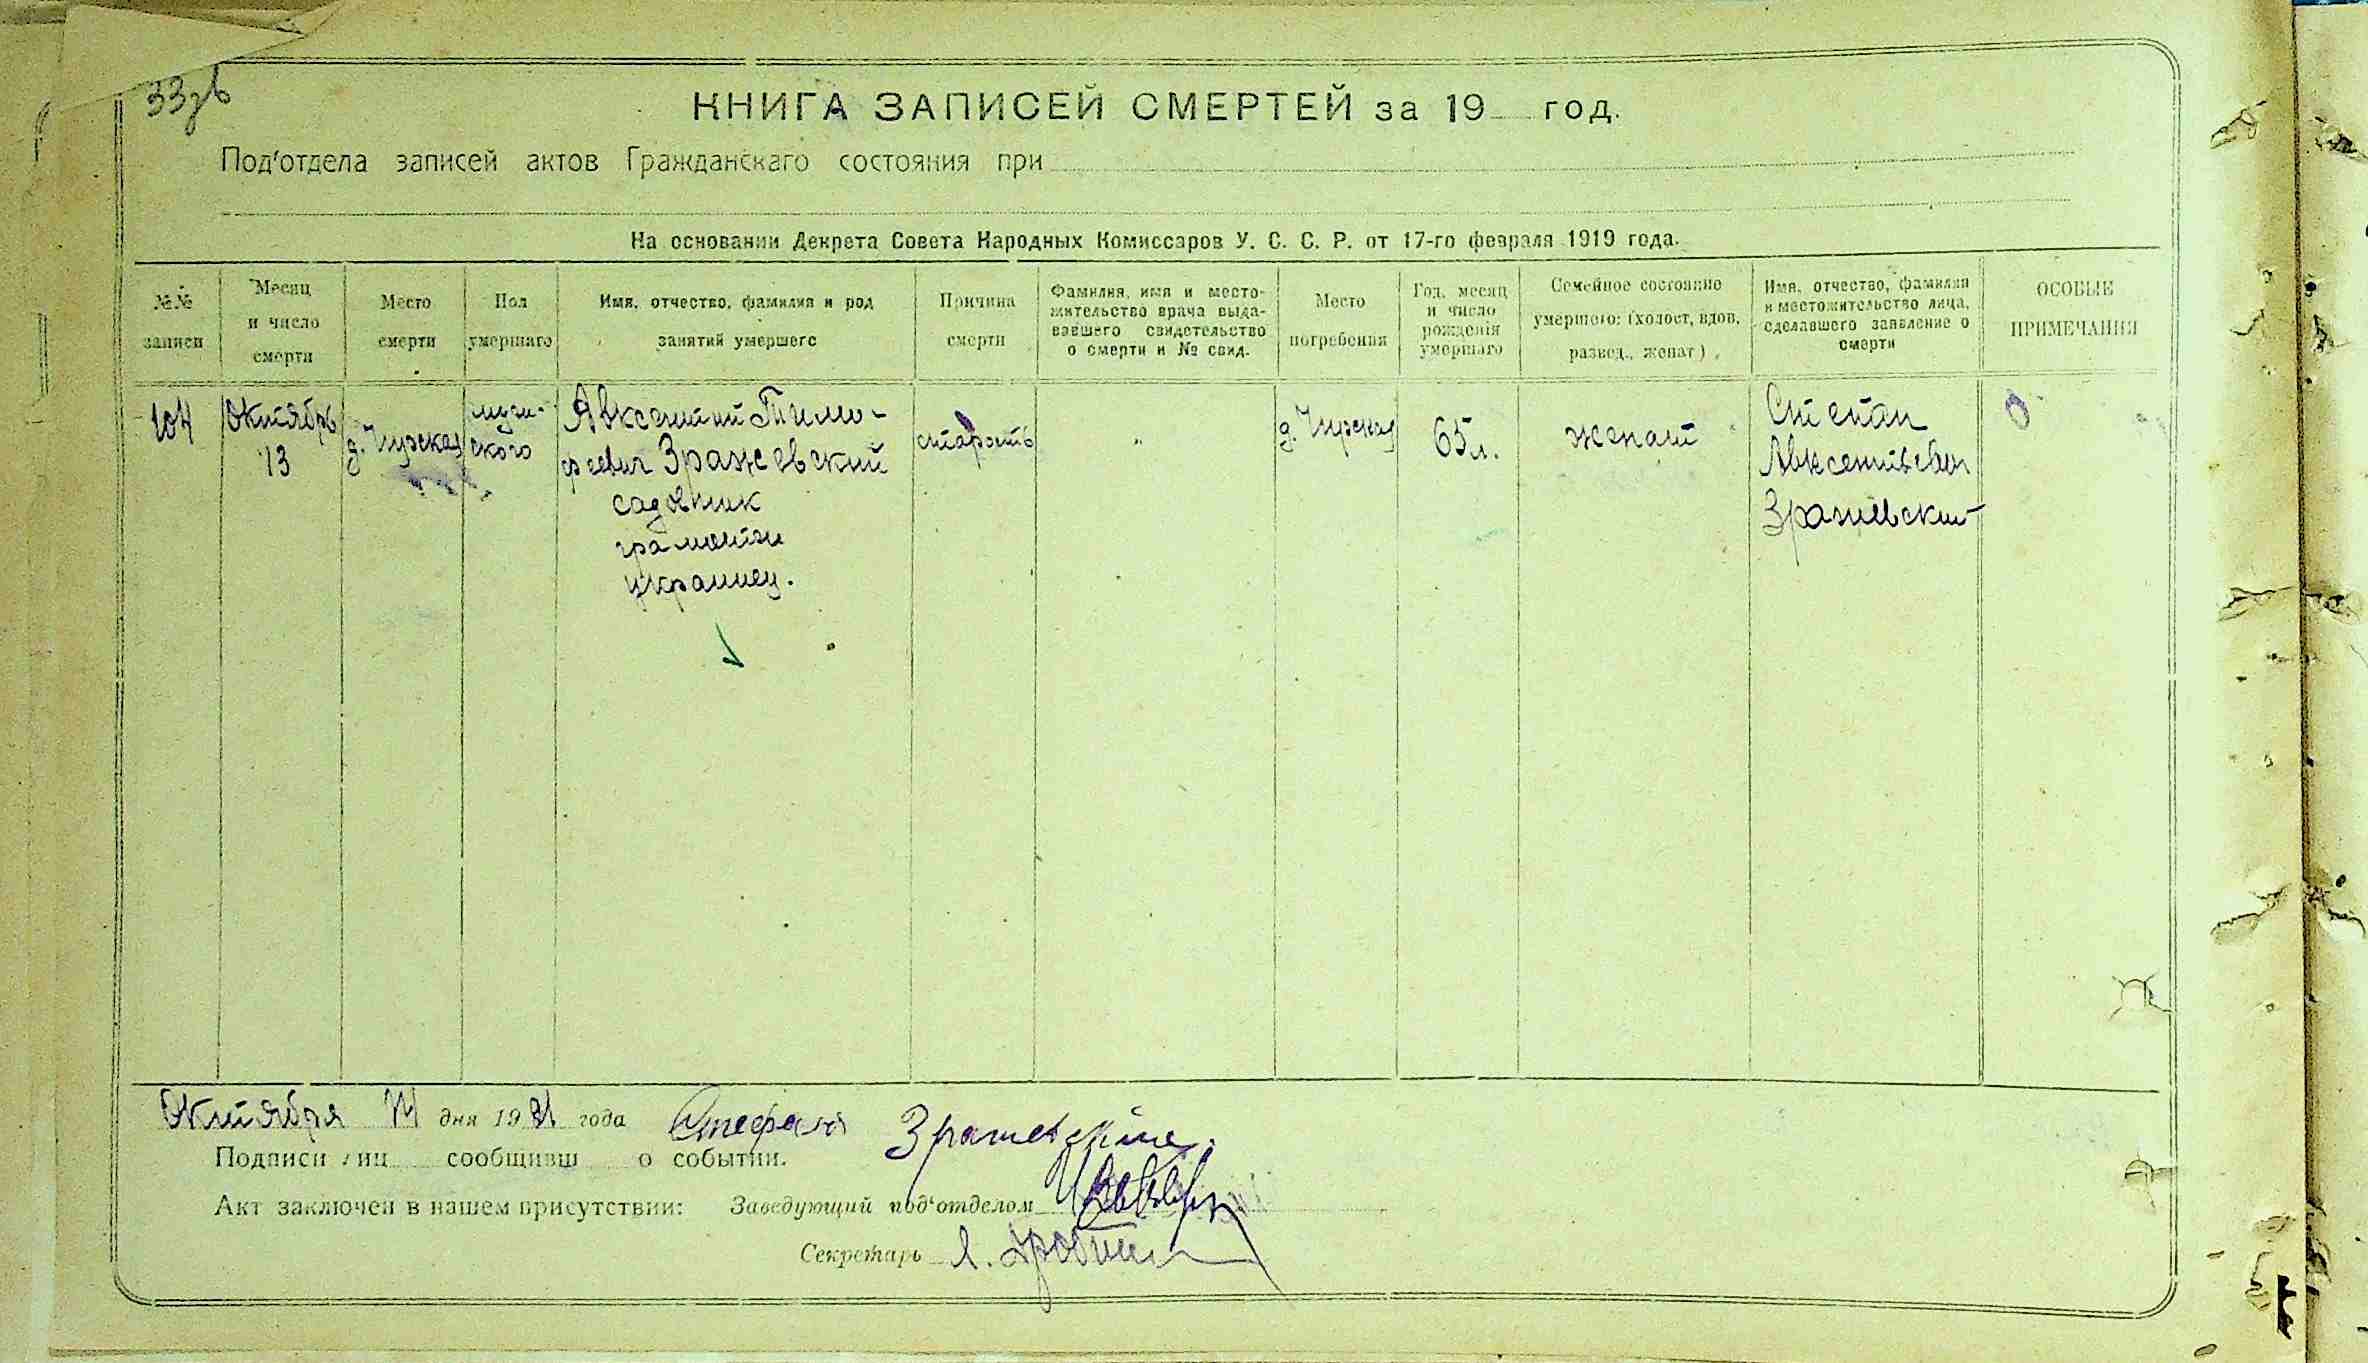 33зв
КНИГА ЗАПИСЕЙ СМЕРТЕЙ за 19 год.
Под'отдела записей актов Гражданскаго состояния при
На основании Декрета Совета Народных Комиссаров У. С. С. Р. от 17-го февраля 1919 года.
№№
записи
Месяц
и число
смерти
Место
смерти
Пол
умершаго
Имя, отчество, фамилия и род
занятий умершего
Причина
смерти
Фамилия, имя и место-
жительство врача выда-
вавшего свидетельство
о смерти и № свид.
Место
погребения
Год, месяц
и число
рождения
умершаго
Семейное состояние
умершего: (холост, вдов,
развед., женат)
Имя, отчество, фамилия
и местожительство лица,
сделавшего заявление о
смерти
ОСОБЫЕ
ПРИМЕЧАНИЯ
104
Октябрь
13
д.
мужи-
ского
Авксентий Тимо-
феевич Зражевский
садовник
украинец.
старость
"
д.
65 л.
женат
Степан
Авксентьевич
Зражевский
Октября 14 дня 1921 года Стефан
Подписи лиц сообщивш о событии.
Акт заключен в нашем присутствии: Заведующий под'отделом
Секретарь